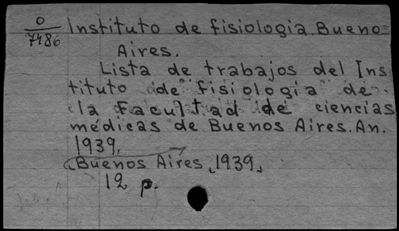 O
7486
Instituto de fisiologia. Buenos
Aires.
Lista de trabajos del Ins
tituto de fisiologia de
la Facultad de ciencias
médicas de Buenos Aires. An.
1939.
Buenos Aires, 1939.
12 p.